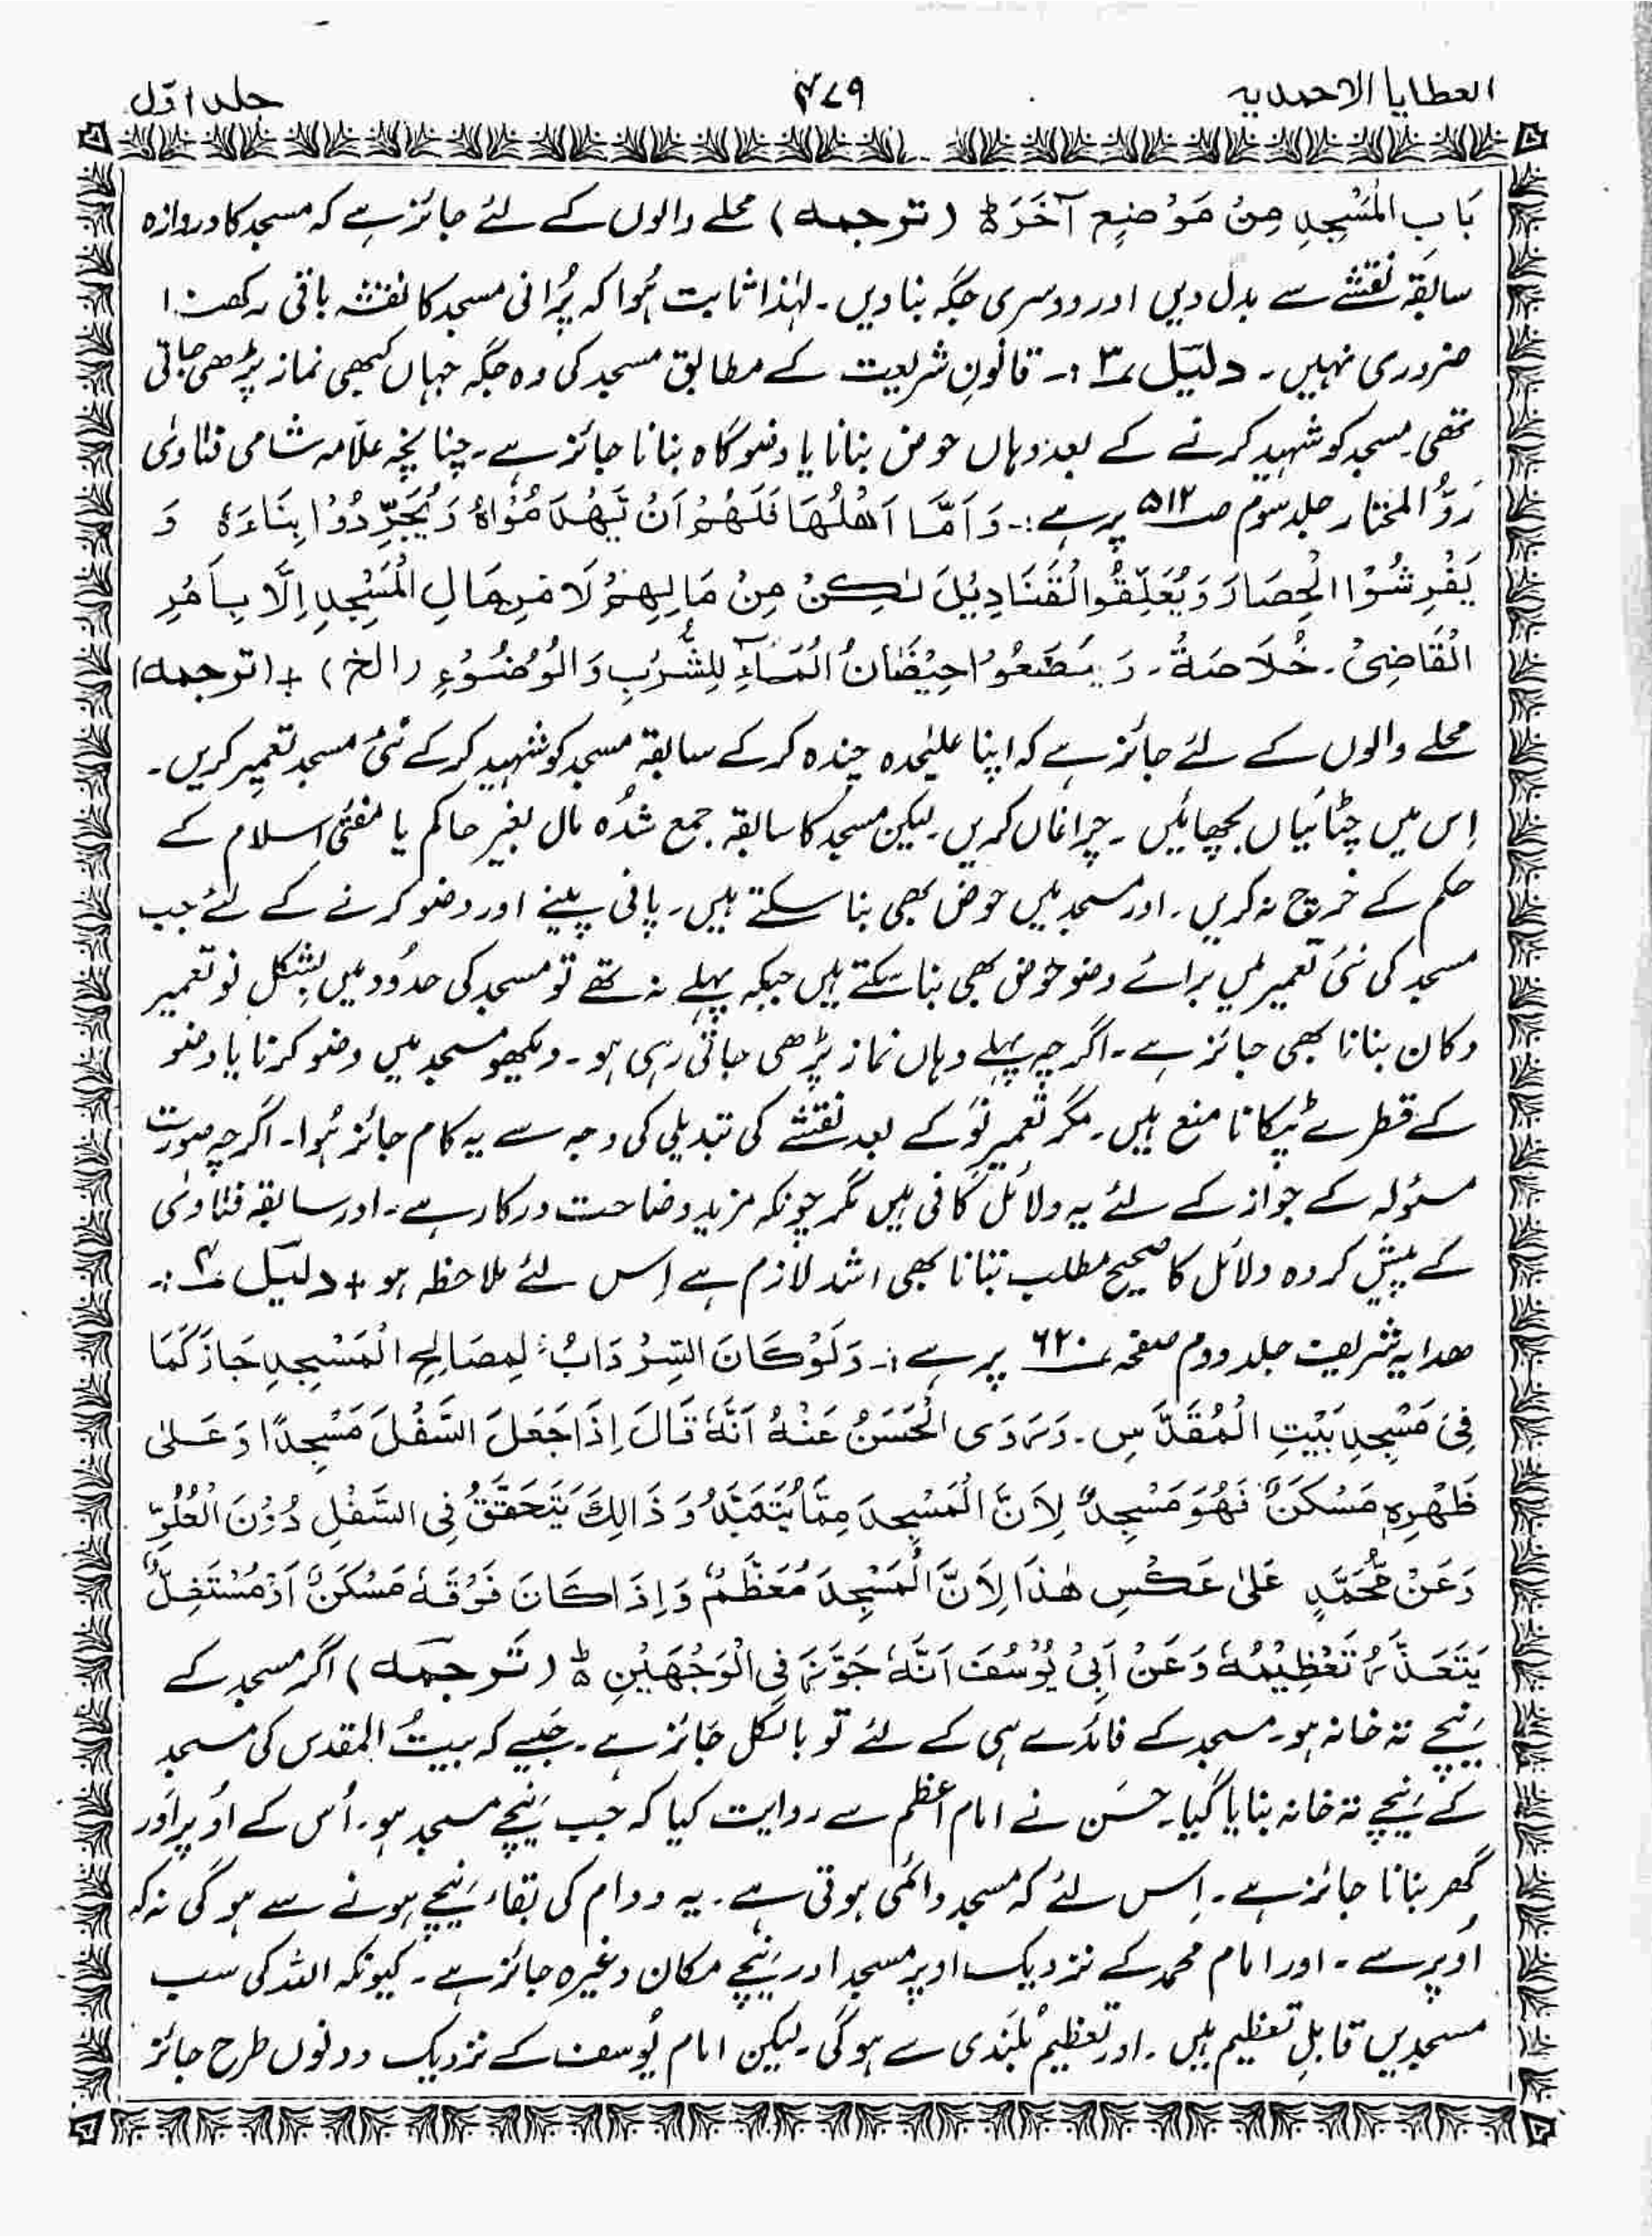 العطایا الاحمدیہ
۴۷۹
جلد اوّل
بَابِ الْمَسْجِدِ مِنْ مَوْضِعٍ آخَرَ ط (ترجمہ) محلے والوں کے لئے جائز ہے کہ مسجد کا دروازہ
سابقہ نقشے سے بدل دیں اور دوسری جگہ بنا دیں۔ لہٰذا ثابت ہُوا کہ پُرانی مسجد کا نقشہ باقی رکھنا
ضروری نہیں۔ دلیل ۳؎ :۔ قانونِ شریعت کے مطابق مسجد کی وہ جگہ جہاں کبھی نماز پڑھی جاتی
تھی۔ مسجد کو شہید کرنے کے بعد وہاں حوض بنانا یا وضو گاہ بنانا جائز ہے۔ چنانچہ علّامہ شامی فتاویٰ
رَدُّ المختار جلد سوم صـ۵۱۲ پر ہے :۔ وَاَمَّا اَهْلُهَا فَلَهُمْ اَنْ يَّهْدِمُوْاهُ وَيُجَدِّدُوْا بِنَاءَهٗ وَ
يَفْرِشُوْا الْحِصَارَ وَيُعَلِّقُوا الْقَنَادِيْلَ لٰكِنْ مِنْ مَالِهِمْ لَا مِنْ مَالِ الْمَسْجِدِ اِلَّا بِاَمْرِ
الْقَاضِىْ۔ خُلَاصَةٌ۔ وَيَضَعُوْا حِيْضَانُ الْمَآءِ لِلشُّرْبِ وَالْوُضُوْءِ (الخ) + (ترجمہ)
محلے والوں کے لئے جائز ہے کہ اپنا علیٰحدہ چندہ کر کے سابقہ مسجد کو شہید کر کے نئی مسجد تعمیر کریں۔
اِس میں چٹائیاں بچھائیں۔ چراغاں کریں۔ لیکن مسجد کا سابقہ جمع شدُہ مال بغیر حاکم یا مفتیٔ اسلام کے
حکم کے خرچ نہ کریں۔ اور مسجد میں حوض بھی بنا سکتے ہیں۔ پانی پینے اور وضو کرنے کے لئے جب
مسجد کی نئی تعمیر میں برائے وضو حوض بھی بنا سکتے ہیں جبکہ پہلے نہ تھے تو مسجد کی حدُود میں بشکلِ نو تعمیر
دکان بنانا بھی جائز ہے۔ اگرچہ پہلے وہاں نماز پڑھی جاتی رہی ہو۔ دیکھو مسجد میں وضو کرنا یا وضو
کے قطرے ٹپکانا منع ہیں۔ مگر تعمیرِ نَو کے بعد نقشے کی تبدیلی کی وجہ سے یہ کام جائز ہُوا۔ اگرچہ صورت
مسئولہ کے جواز کے لئے یہ دلائل کافی ہیں مگر چونکہ مزید وضاحت درکار ہے۔ اور سابقہ فتاویٰ
کے پیش کردہ دلائل کا صحیح مطلب بتانا بھی اشد لازم ہے اِس لئے ملاحظہ ہو + دلیل ۴؎ :۔
ھدایہ شریف جلد دوم صفحہ ۶۲۰ پر ہے :۔ وَلَوْ كَانَ السِّرْدَابُ لِمَصَالِحِ الْمَسْجِدِ جَازَ كَمَا
فِىْ مَسْجِدِ بَيْتِ الْمُقَدَّسِ۔ وَرَوَى الْحَسَنُ عَنْهُ اَنَّهٗ قَالَ اِذَا جَعَلَ السَّفْلَ مَسْجِدًا وَعَلٰى
ظَهْرِهٖ مَسْكَنٌ فَهُوَ مَسْجِدٌ لِاَنَّ الْمَسْجِدَ مِمَّا يُتَأَبَّدُ وَذَالِكَ يَتَحَقَّقُ فِى السَّفْلِ دُوْنَ الْعُلُوِّ
وَعَنْ مُحَمَّدٍ عَلٰى عَكْسِ هٰذَا لِاَنَّ الْمَسْجِدَ مُعَظَّمٌ وَاِذَا كَانَ فَوْقَهٗ مَسْكَنٌ اَوْ مُسْتَغِلٌّ
يَتَعَذَّرُ تَعْظِيْمُهٗ وَعَنْ اَبِىْ يُوْسُفَ اَنَّهٗ جَوَّزَ فِى الْوَجْهَيْنِ ط (ترجمہ) اگر مسجد کے
نیچے تہ خانہ ہو۔ مسجد کے فائدے ہی کے لئے تو بالکل جائز ہے۔ جیسے کہ بیتُ المقدس کی مسجد
کے نیچے تہ خانہ بنایا گیا۔ حسَن نے امام اعظم سے روایت کیا کہ جب نیچے مسجد ہو۔ اُس کے اُوپر اَور
گھر بنانا جائز ہے۔ اِس لئے کہ مسجد دائمی ہوتی ہے۔ یہ دوام کی بقاء نیچے ہونے سے ہو گی نہ کہ
اُوپر سے۔ اور امام محمد کے نزدیک اوپر مسجد اور نیچے مکان وغیرہ جائز ہے۔ کیونکہ اللہ کی سب
مسجدیں قابلِ تعظیم ہیں۔ اور تعظیم بُلَندی سے ہوگی۔ لیکن امام یُوسف کے نزدیک دونوں طرح جائز